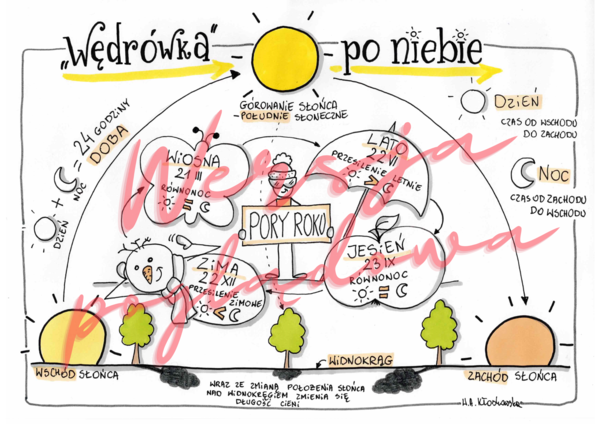 „Wędrówka" po niebie
GÓROWANIE SŁOŃCA
- POŁUDNIE SŁONECZNE
DZIEŃ + NOC = 24 GODZINY
DOBA
DZIEŃ
CZAS OD WSCHODU
DO ZACHODU
NOC
CZAS OD ZACHODU
DO WSCHODU
WIOSNA
21 III
RÓWNONOC
=
LATO
22 VI
PRZESILENIE LETNIE
>
PORY ROKU
JESIEŃ
23 IX
RÓWNONOC
=
ZIMA
22 XII
PRZESILENIE
ZIMOWE
<
Wersja
poglądowa
WSCHÓD SŁOŃCA
WIDNOKRĄG
ZACHÓD SŁOŃCA
WRAZ ZE ZMIANĄ POŁOŻENIA SŁOŃCA
NAD WIDNOKRĘGIEM ZMIENIA SIĘ
DŁUGOŚĆ CIENI